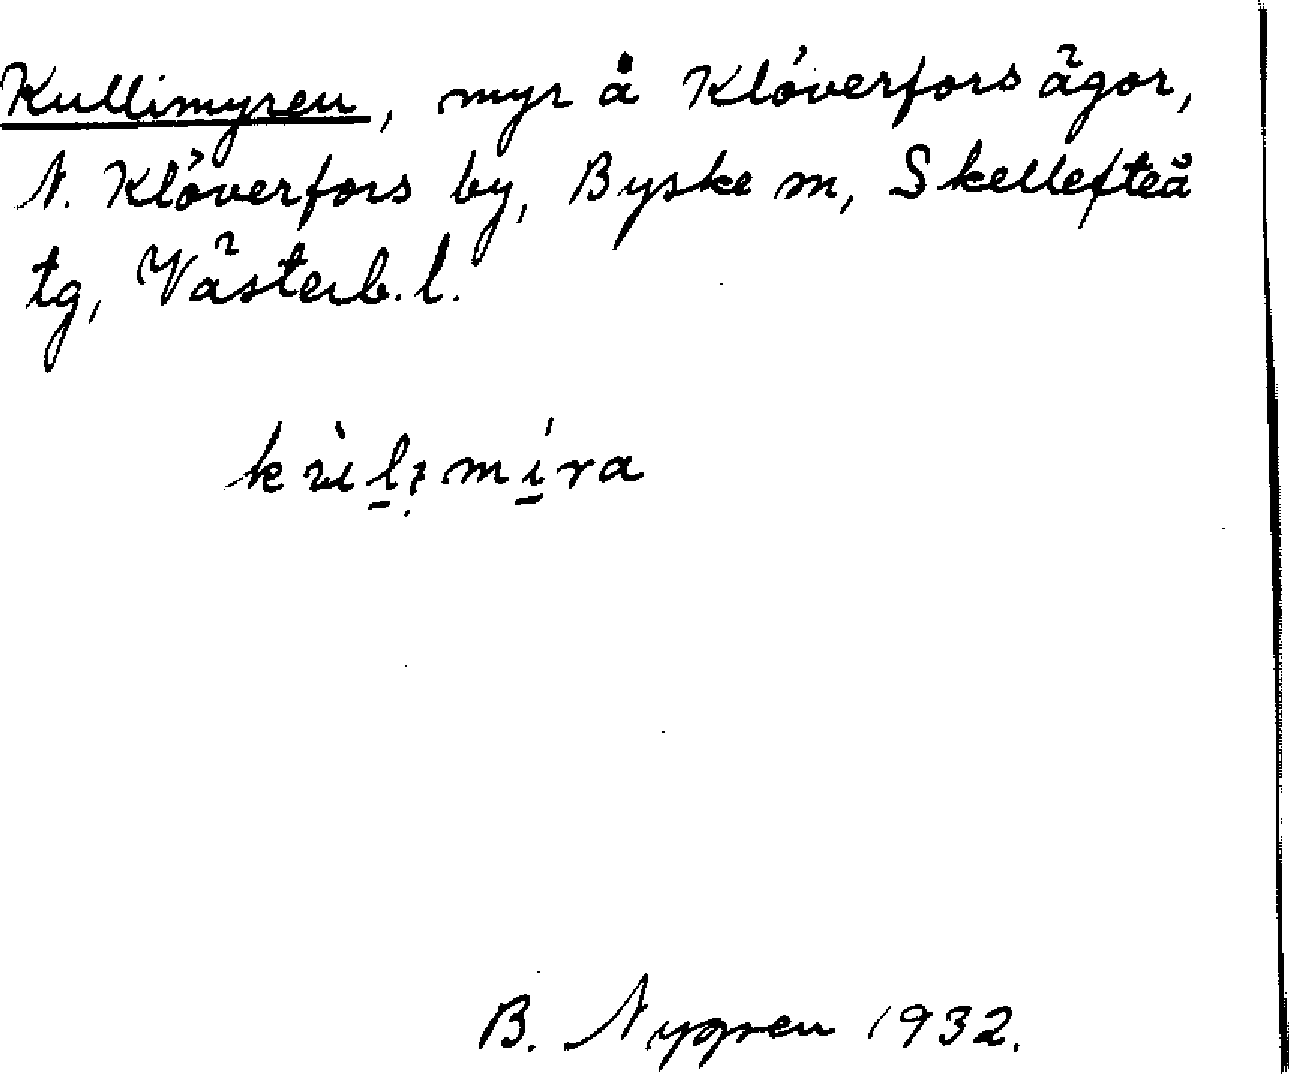 Kullimyren, myr å Klöverfors ägor,
N. Klöverfors by, Byske sn, Skellefteå
tg, Västerb. l.
kùl̲ı̣mí̲ra
B. Nygren 1932.